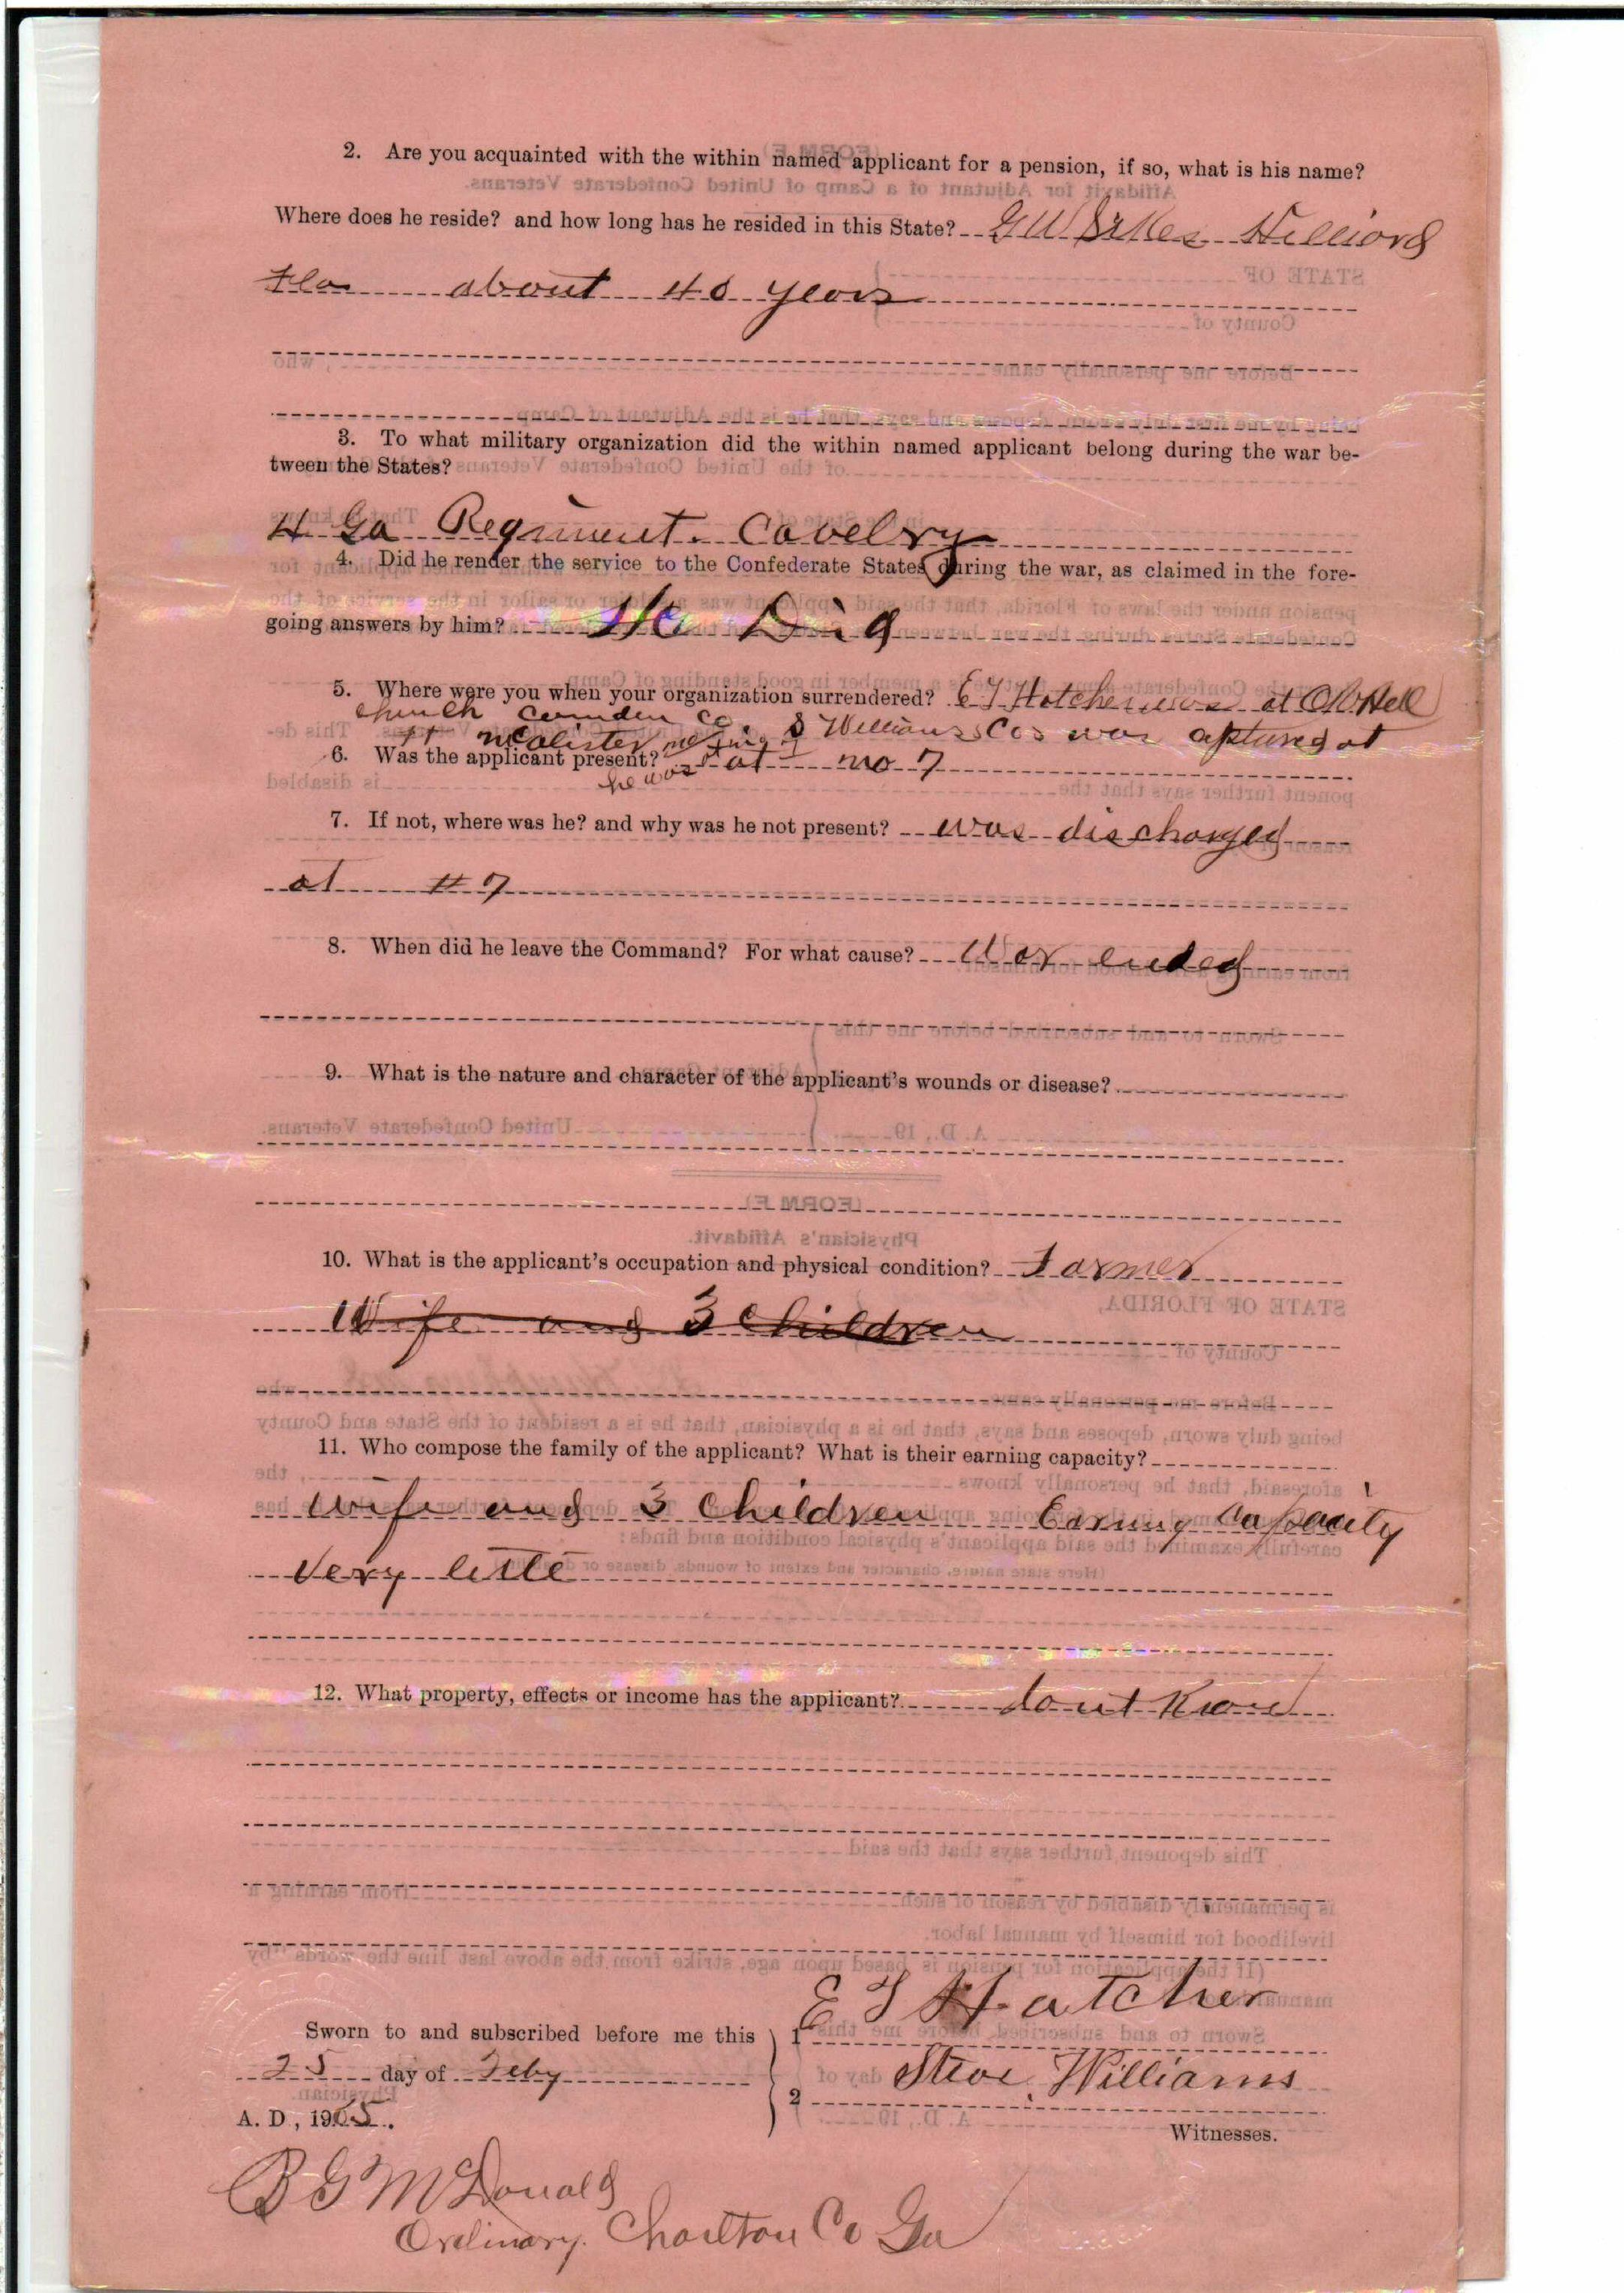 2. Are you acquainted with the within named applicant for a pension, if so, what is his name?
Where does he reside? and how long has he resided in this State? G W Hilliard
Fla about 40 years
3. To what military organization did the within named applicant belong during the war be-
tween the States?
4 Ga Regiment. Cavelry
4. Did he render the service to the Confederate States during the war, as claimed in the fore-
going answers by him? He Did
5. Where were you when your organization surrendered? E T Hatcher was at
church Camden Co. S Williams was captured at
Ft McAlister
6. Was the applicant present? he was at no 7
7. If not, where was he? and why was he not present? was discharged
at # 7
8. When did he leave the Command? For what cause? War ended
9. What is the nature and character of the applicant's wounds or disease?
10. What is the applicant's occupation and physical condition? Farmer
Wife and 3 Children
11. Who compose the family of the applicant? What is their earning capacity?
wife and 3 Children Earning Capacity
Very little
12. What property, effects or income has the applicant? dont Know
E T Hatcher
Sworn to and subscribed before me this 1
25 day of Feby Steve Williams
2
A. D., 1905.
Witnesses.
B G McDonald
Ordinary. Charlton Co Ga